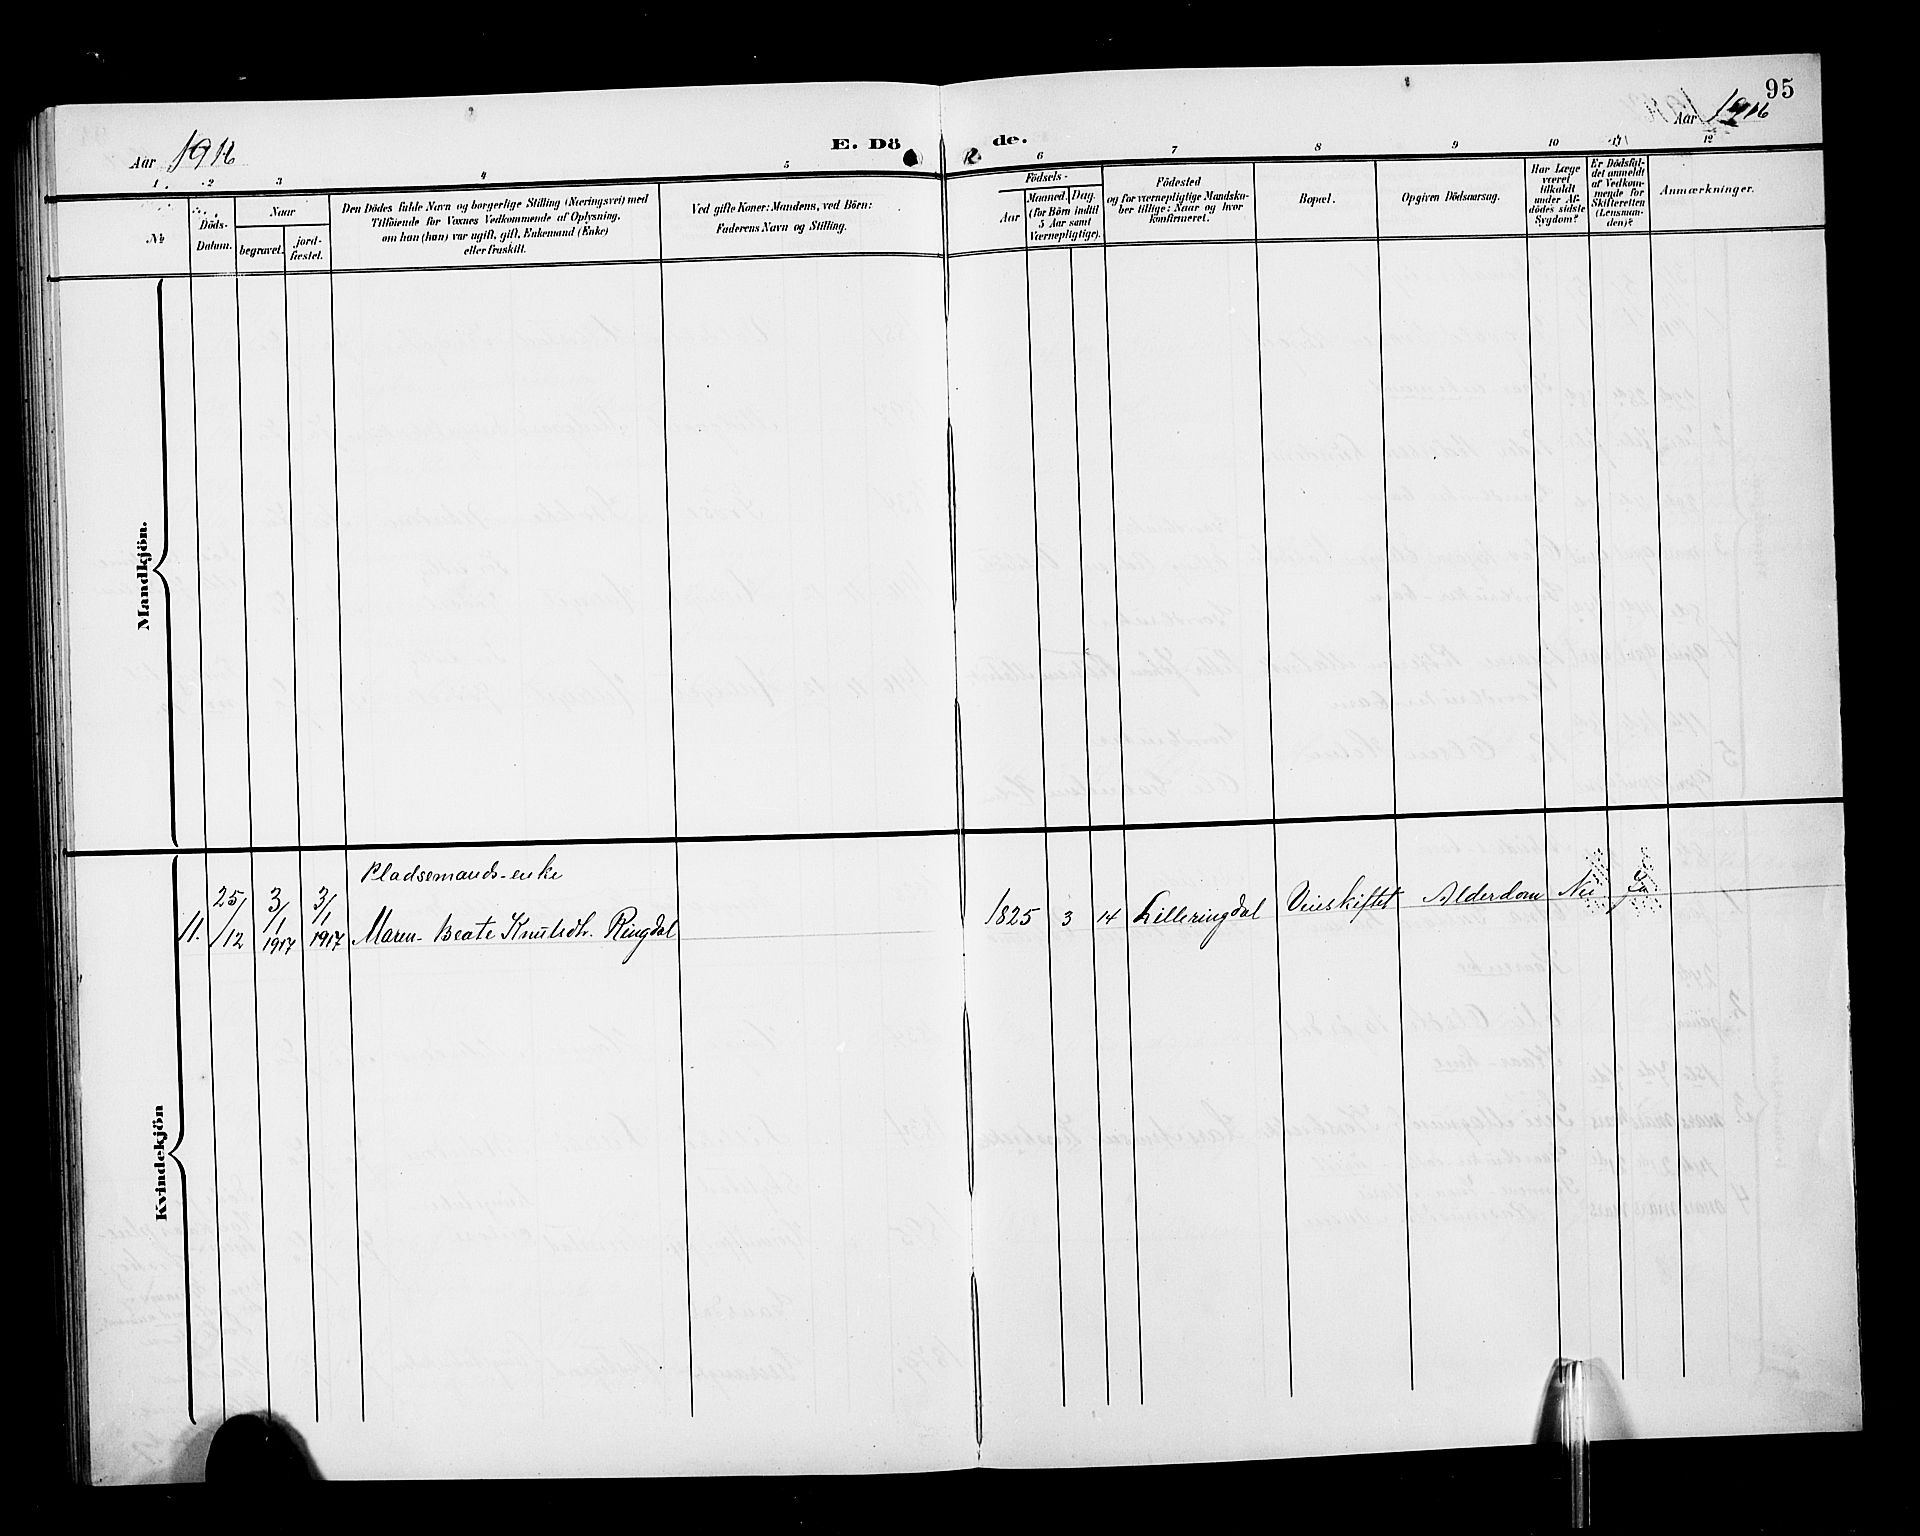 95
Aar 1916
E. Döde.
Aar 1916
1 2 3 4 5 6 7 8 9 10 11 12
No
Döds-
Datum.
Naar
begravet.
jord-
fæstet.
Den Dödes fulde Navn og borgerlige Stilling (Næringsvei) med
Tilföiende for Voxnes Vedkommende af Oplysning,
om han (hun) var ugift, gift, Enkemand (Enke)
eller fraskilt.
Ved gifte Koner: Mandens, ved Börn:
Faderens Navn og Stilling.
Födsels-
Aar
Maaned.
Dag.
(for Börn indtil
5 Aar samt
Værnepligtige).
Födested
og for værnepligtige Mandska-
ber tillige: Naar og hvor
konfirmeret.
Bopæl.
Opgiven Dödsaarsag.
Har Læge
været
tilkaldt
under Af-
dödes sidste
Sygdom?
Er Dödsfal-
det anmeldt
af Vedkom-
mende for
Skifteretten
(Lensman-
den)?
Anmærkninger.
Mandkjön.
Kvindekjön
Pladsemands-enke
11. 25/12 3/1 1917 3/1 1917 Maren Beate Knutsdtr. Ringdal 1825 3 14 Lilleringdal Veieskiftet Alderdom Nei Ja